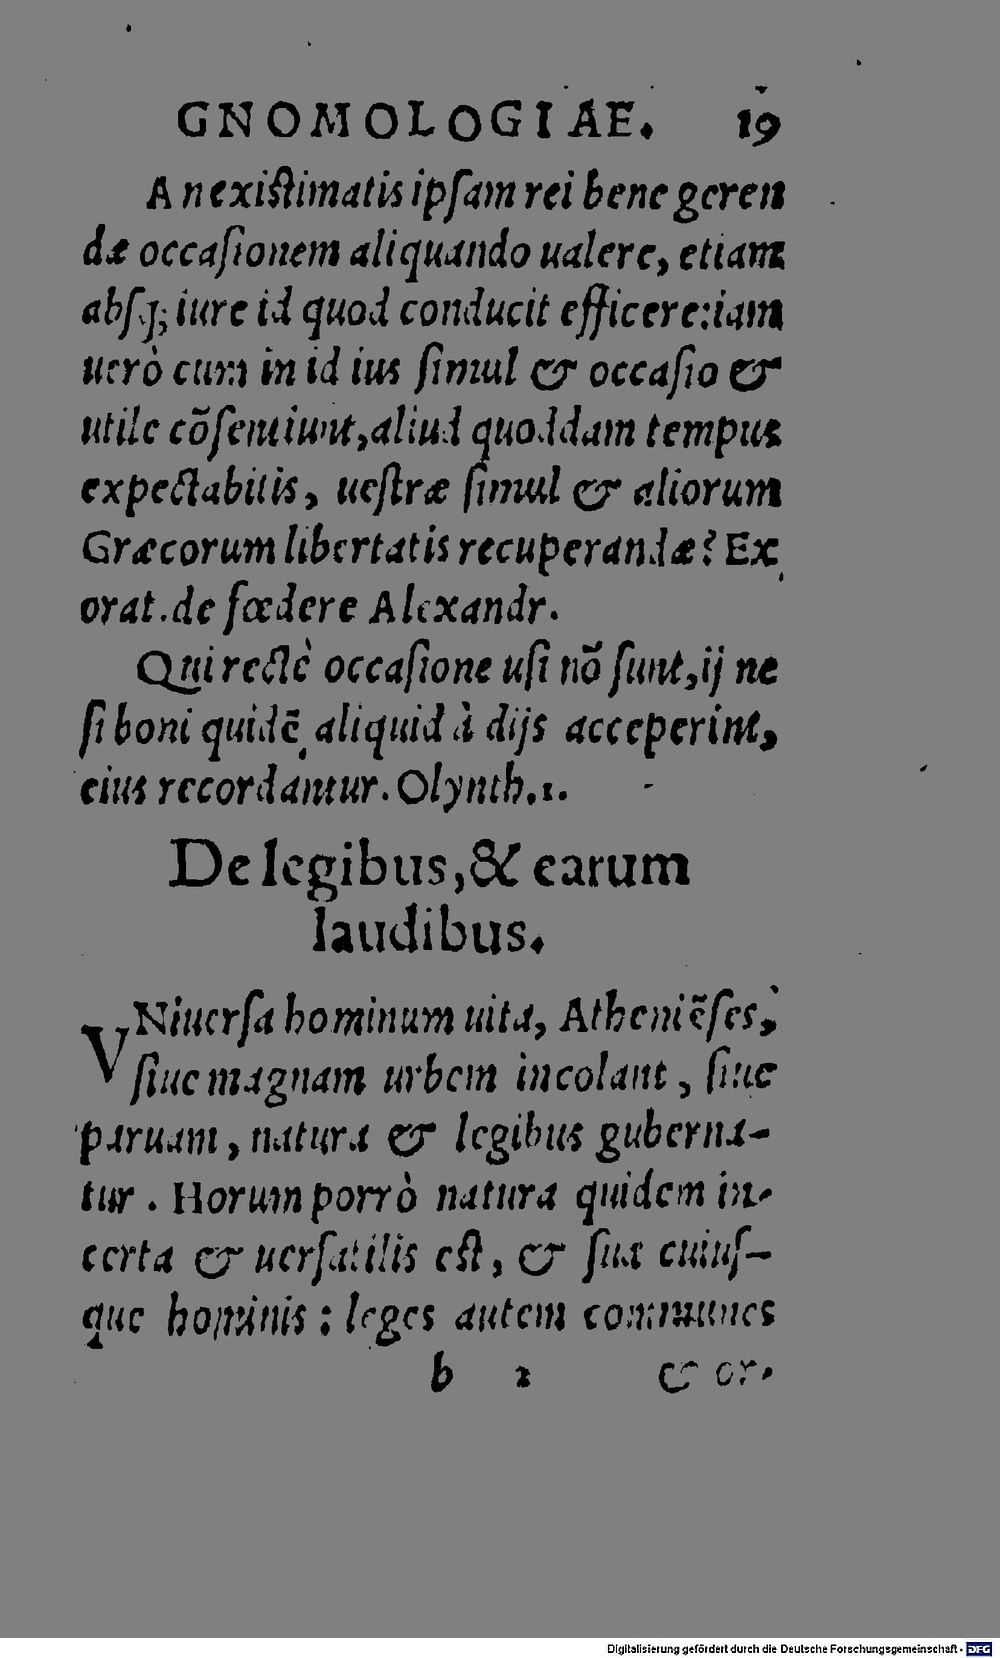 GNOMOLOGIAE. 19
An existimatis ipſam rei bene geren
dæ occaſionem aliquando ualere, etiam
abſq; iure id quod conducit efficere: iam
uerò cum in id ius ſimul & occaſio &
utile cõſentiunt, aliud quoddam tempus
expectabitis, ueſtræ ſimul & aliorum
Græcorum libertatis recuperandæ? Ex
orat. de fœdere Alexandr.
Qui rectè occaſione uſi nõ ſunt, ij ne
ſi boni quidẽ aliquid à dijs acceperint,
eius recordantur. Olynth. 1.
De legibus, & earum
laudibus.
VNiuerſa hominum uita, Atheniẽſes,
ſiue magnam urbem incolant, ſiue
paruam, natura & legibus guberna-
tur. Horum porrò natura quidem in-
certa & uerſatilis eſt, & ſua cuiuſ-
que hominis: leges autem communes
b 2 & or-
Digitalisierung gefördert durch die Deutsche Forschungsgemeinschaft - DFG